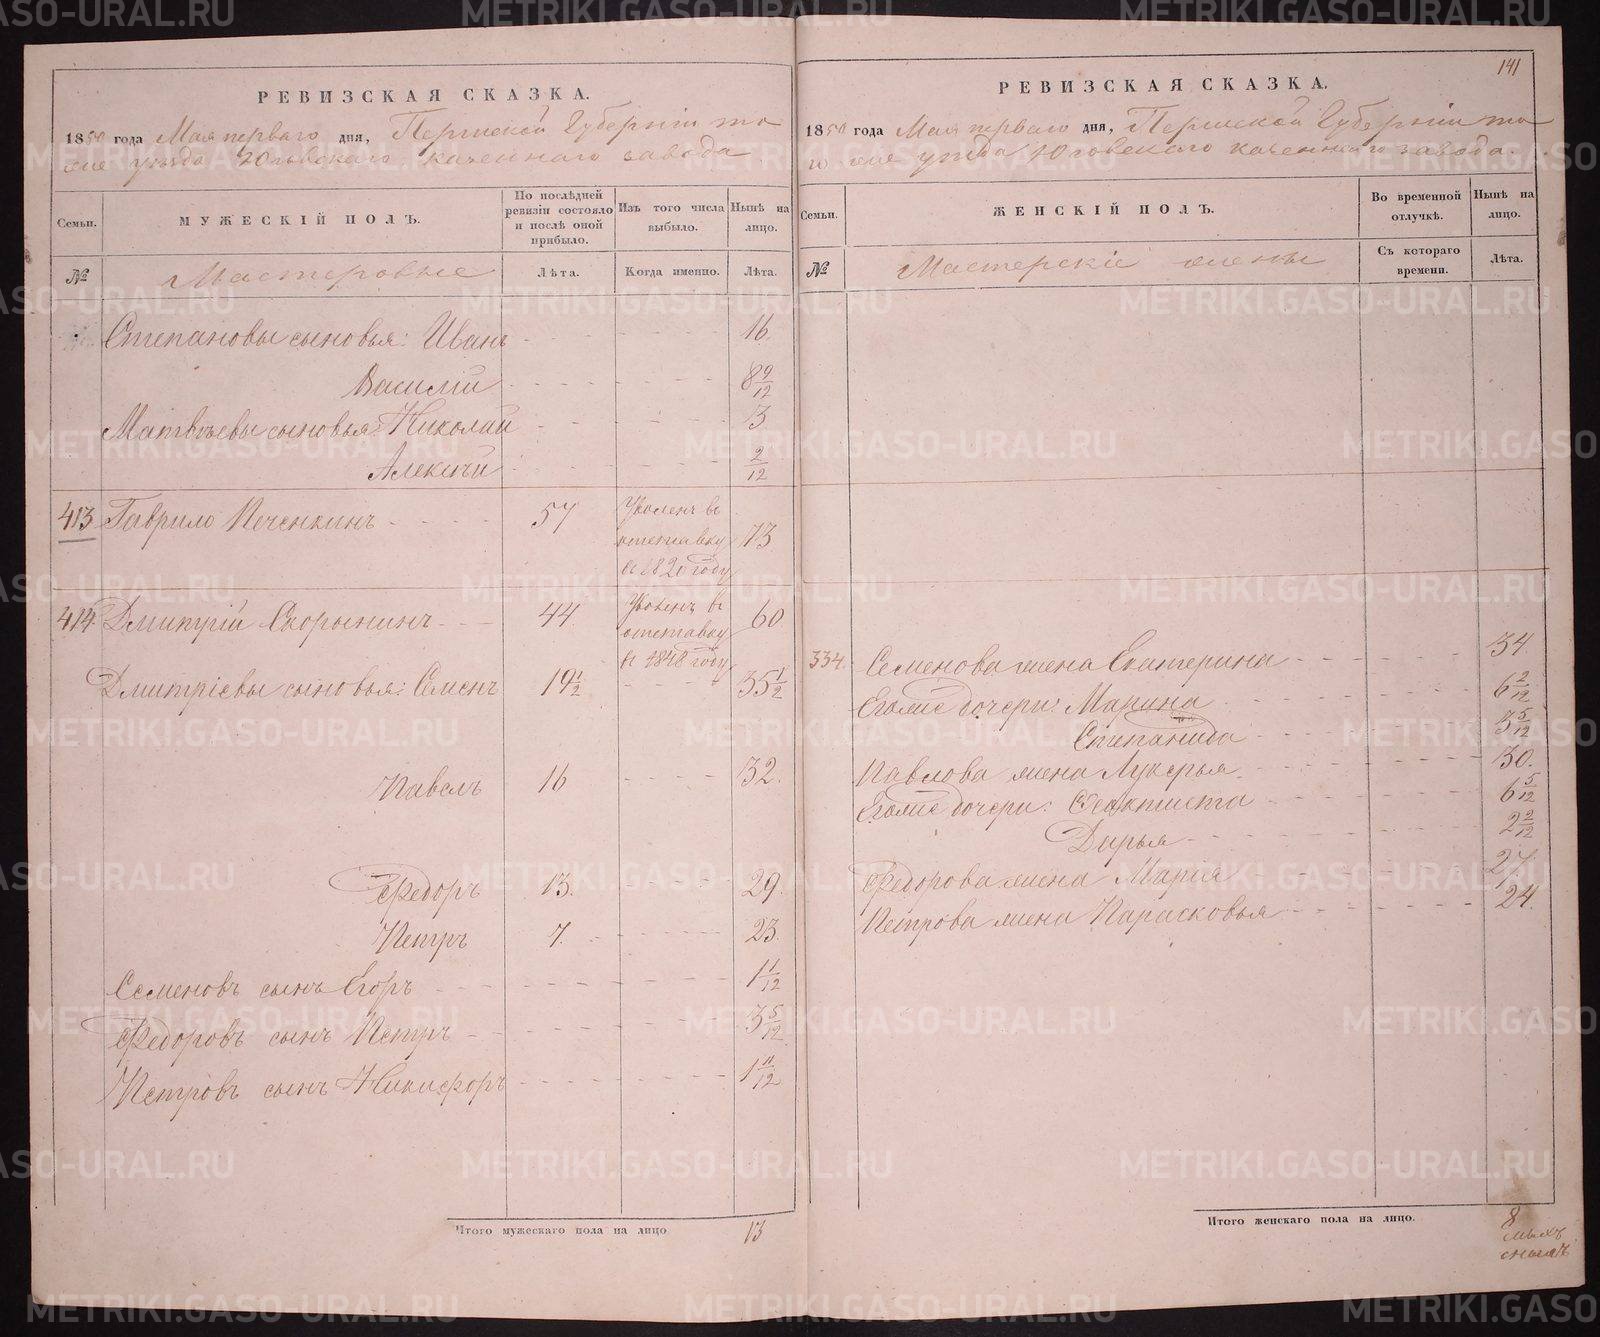 РЕВИЗСКАЯ СКАЗКА.
1850 года Мая перваго дня, Пермской Губерніи то
го же уѣзда Юговскаго казеннаго завода
Семьи.
МУЖЕСКІЙ ПОЛЪ.
По послѣдней ревизіи состояло и послѣ оной прибыло.
Изъ того числа выбыло.
Нынѣ на лицо.
№ Мастеровые Лѣта. Когда именно. Лѣта.
Степановы сыновья: Иванъ 16
Василій 8 9/12
Матвѣевы сыновья: Николай 3
Алексѣй 2/12
413 Гаврило Печенкинъ 57 Уволенъ въ отставку въ 1820 году 73
414. Дмитрій Скорынинъ 44 Уволенъ въ отставку въ 1848 году 60
Дмитріевы сыновья: Семенъ 19 1/2 35 1/2
Павелъ 16 32.
Федоръ 13. 29.
Петръ 7. 23.
Семеновъ сынъ Егоръ 1 1/12
Федоровъ сынъ Петръ 3 5/12
Петровъ сынъ Никифоръ 1 11/12
Итого мужескаго пола на лицо 13
141
РЕВИЗСКАЯ СКАЗКА.
1850 года Мая перваго дня, Пермской Губерніи то
го же уѣзда Юговскаго казеннаго завода.
Семьи.
ЖЕНСКІЙ ПОЛЪ.
Во временной отлучкѣ.
Нынѣ на лицо.
№ Мастерскіе жены Съ котораго времени. Лѣта.
334. Семенова жена Екатерина 34.
Егоже дочери: Марина 6 2/12
Степанида 3 5/12
Павлова жена Лукерья 30.
Егоже дочери: Феоктиста 6 5/12
Дарья 2 2/12
Федорова жена Мария 27.
Петрова жена Парасковья 24.
Итого женскаго пола на лицо. 8
METRIKI.GASO-URAL.RU